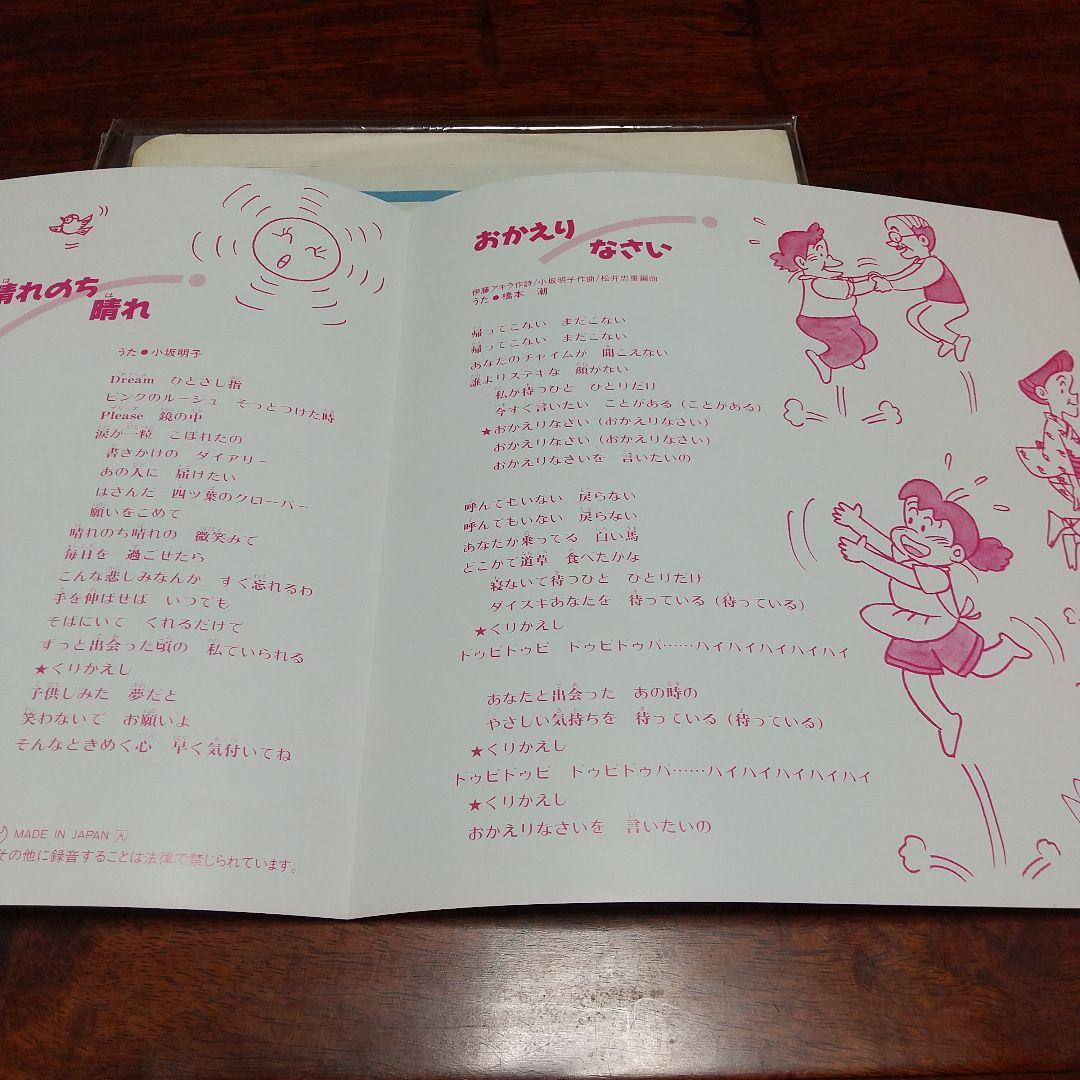 晴れのち
晴れ
うた●小坂明子
Dream ひとさし指
ピンクのルージュ そっとつけた時
Please 鏡の中
涙が一粒 こぼれたの
書きかけの ダイアリー
あの人に 届けたい
はさんだ 四ツ葉のクローバー
願いをこめて
晴れのち晴れの 微笑みで
毎日を 過ごせたら
こんな悲しみなんか すぐ忘れるわ
手を伸ばせば いつでも
そばにいて くれるだけで
ずっと出会った頃の 私でいられる
★くりかえし
子供じみた 夢だと
笑わないで お願いよ
そんなときめく心 早く気付いてね
MADE IN JAPAN 九
その他に録音することは法律で禁じられています。
おかえり
なさい
伊藤アキラ作詩/小坂明子作曲/松井忠重編曲
うた●橋本 潮
帰ってこない まだこない
帰ってこない まだこない
あなたのチャイムが 聞こえない
誰よりステキな 顔がない
私が待つひと ひとりだけ
今すぐ言いたい ことがある(ことがある)
★おかえりなさい(おかえりなさい)
おかえりなさい(おかえりなさい)
おかえりなさいを 言いたいの
呼んでもいない 戻らない
呼んでもいない 戻らない
あなたが乗ってる 白い馬
どこかで道草 食べたかな
寝ないで待つひと ひとりだけ
ダイスキあなたを 待っている(待っている)
★くりかえし
ドゥビドゥビ ドゥビドゥバ……ハイハイハイハイハイ
あなたと出会った あの時の
やさしい気持ちを 待っている(待っている)
★くりかえし
ドゥビドゥビ ドゥビドゥバ……ハイハイハイハイハイ
★くりかえし
おかえりなさいを 言いたいの